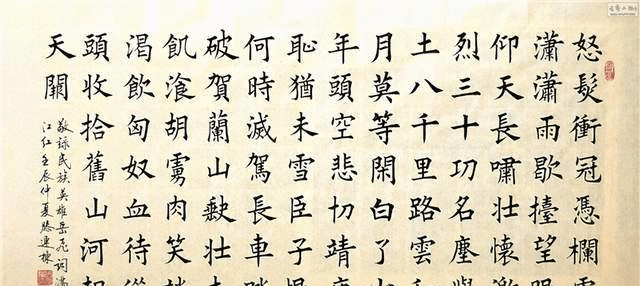 怒髮衝冠憑欄
瀟瀟雨歇擡望
仰天長嘯壯懷激
烈三十功名塵與
土八千里路雲
月莫等閑白了
年頭空悲切靖
恥猶未雪臣子恨
何時滅駕長車
破賀蘭山缺壯
飢飡胡虜肉笑
渴飲匈奴血待從
頭收拾舊山河
天闕
敬錄民族英雄岳飛詞滿
江紅壬辰仲夏